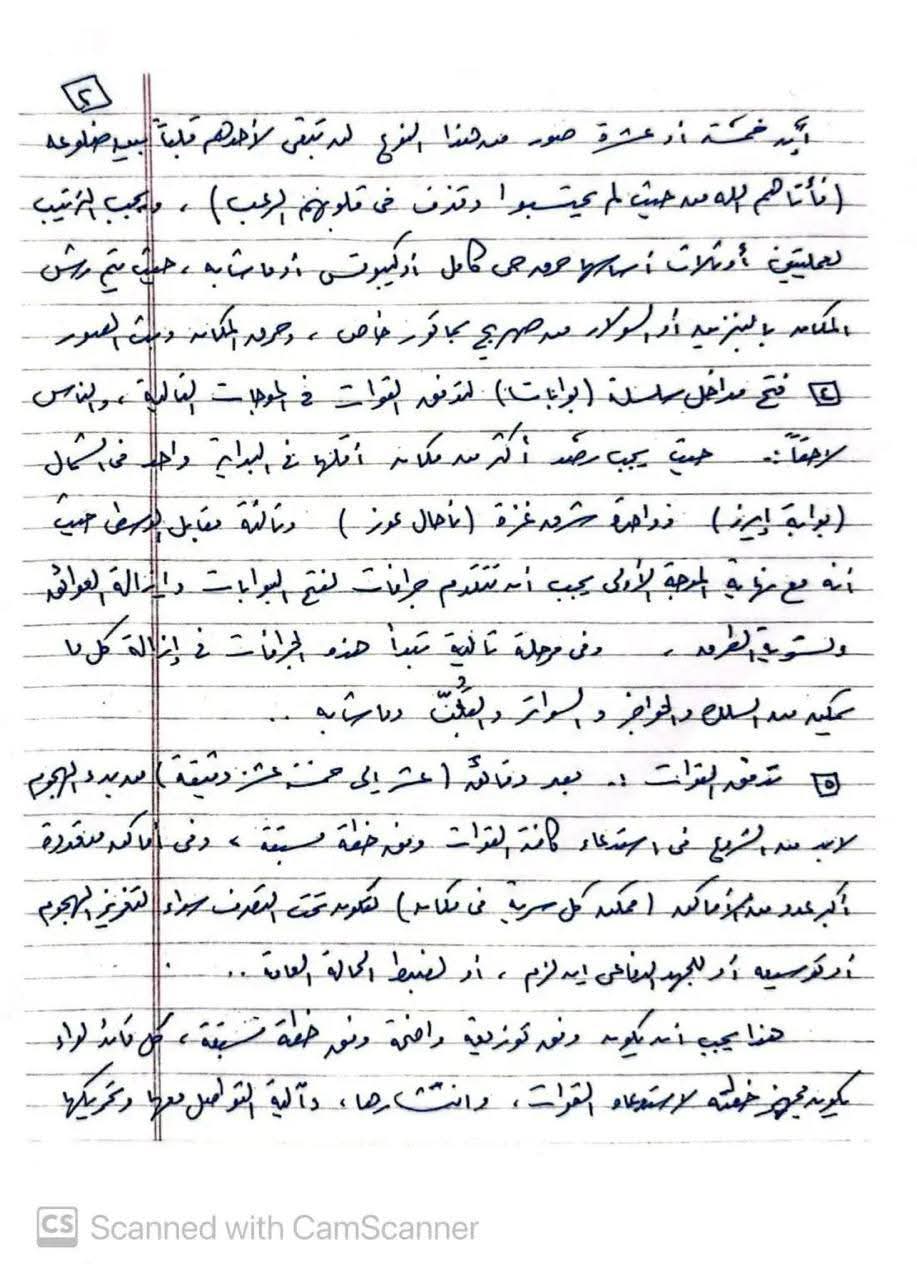 ٢
أيد خمسة أو عشرة صور من هذا النوع لن تبقى لأحدهم قلباً بين ضلوعه
(فأتاهم الله من حيث لم يحتسبوا وقذف فى قلوبهم الرعب) ، ويجب الترتيب
لعمليتين أو ثلاث أساسها حرق حى كامل أو كيبوتس أو ما شابه ، حيث يتم رش
المكان بالبنزين أو السولار من صهريج بماتور خاص ، وحرق المكان وبث الصور
٤ فتح مداخل سلسلة (بوابات) لتدفق القوات فى الموجات التالية ، والناس
لاحقاً :. حيث يجب رصد أكثر من مكان أقلها فى البداية واحد فى الشمال
(بوابة إيرز) وواحدة شرق غزة (ناحال عوز) وثالثة مقابل الوسطى حيث
أنه مع نهاية الموجة الأولى يجب أن تتقدم جرافات لفتح البوابات وإزالة العوائق
وتسوية الطرق ، وفى مرحلة تالية تبدأ هذه الجرافات فى إزالة كل ما
يمكن من السلك والحواجز و السواتر و وما شابه ..
٥ تدفق القوات :. بعد دقائق (عشر إلى خمسة عشر دقيقة) من بدء الهجوم
لابد من الشروع فى استدعاء كافة القوات وفق خطة مسبقة ، وفى أماكن
أكبر عدد من الأماكن (ممكن كل سرية فى مكان) لتكون تحت التصرف سواء لتعزيز الهجوم
أو توسيعه أو للجهد الدفاعى إن لزم ، أو لضبط الحالة العامة ..
هذا يجب أن يكون وفق توزيعة واضحة وفق خطة مسبقة ، كل قائد لواء
يكون مجهز خطته لاستدعاء القوات ، وانتشارها ، وآلية التواصل معها وتحريكها
CS Scanned with CamScanner